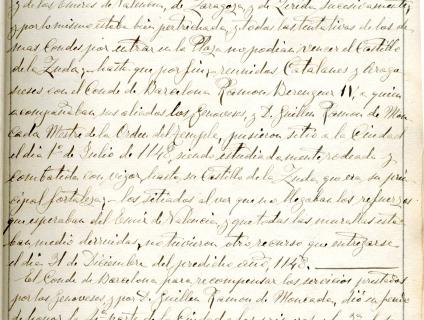 y de los Emires de Valencia, de Zaragoza, y de Lerida sucesivamente,
y por lo mismo estaba bien pertrechada, y todas las tentativas de los de-
mas Condes por entrar en la Plaza no podian vencer el Castillo
de la Zuda,— hasta que por fin, reunidos Catalanes y Arago-
neses con el Conde de Barcelona Ramon Berenguer IV, a quien
acompañaban sus aliados los Genoveses, y D. Guillen Ramon de Mon-
cada Mestre de la Orden del Temple, pusieron sitio a la Ciudad
el dia 1º de Julio de 1148, siendo estudiadamente rodeada y
combatida con vigor, hasta su Castillo de la Zuda que era su prin-
cipal fortaleza;— los sitiados al ver que no llegaban los refuerzos
que esperaban del Emir de Valencia y que todas las murallas esta-
ban medio derruidas, no tuvieron otro recurso que entregarse
el dia 31 de Diciembre del predicho año, 1148.
El Conde de Barcelona para recompensar los servicios prestados
por los Genoveses y por D. Guillen Ramon de Moncada, dió en
de honor la parte de la Ciudad a los